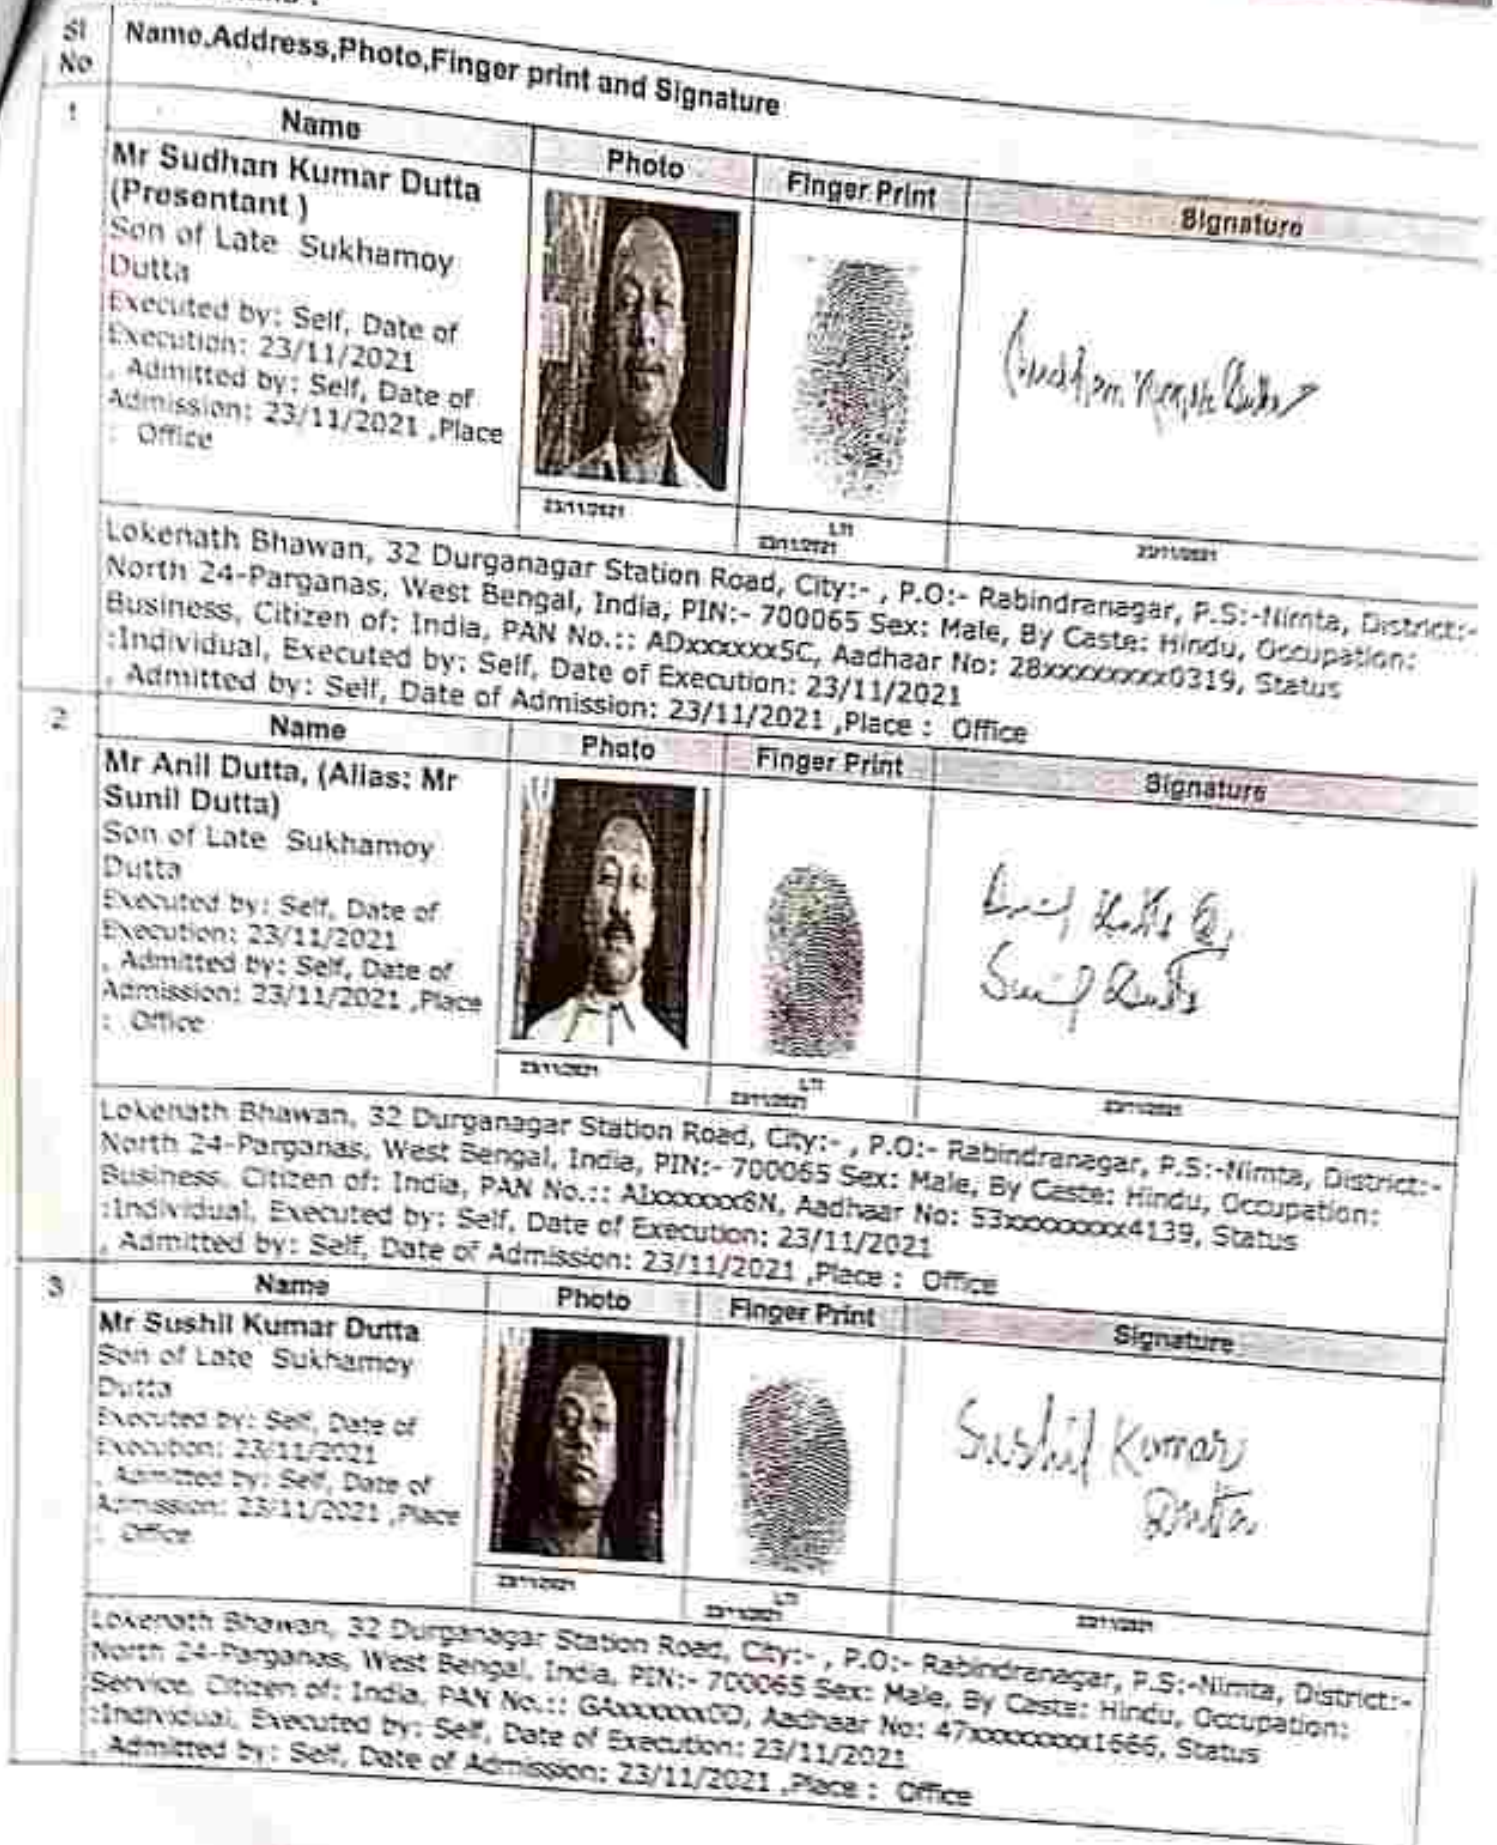 Sl
No
Name,Address,Photo,Finger print and Signature
1
Name
Photo
Finger Print
Signature
Mr Sudhan Kumar Dutta
(Presentant )
Son of Late Sukhamoy
Dutta
Executed by: Self, Date of
Execution: 23/11/2021
, Admitted by: Self, Date of
Admission: 23/11/2021 ,Place
: Office
23/11/2021
LTI
23/11/2021
23/11/2021
Lokenath Bhawan, 32 Durganagar Station Road, City:- , P.O:- Rabindranagar, P.S:-Nimta, District:-
North 24-Parganas, West Bengal, India, PIN:- 700065 Sex: Male, By Caste: Hindu, Occupation:
Business, Citizen of: India, PAN No.:: ADxxxxxx5C, Aadhaar No: 28xxxxxxxx0319, Status
:Individual, Executed by: Self, Date of Execution: 23/11/2021
, Admitted by: Self, Date of Admission: 23/11/2021 ,Place : Office
2
Name
Photo
Finger Print
Signature
Mr Anil Dutta, (Alias: Mr
Sunil Dutta)
Son of Late Sukhamoy
Dutta
Executed by: Self, Date of
Execution: 23/11/2021
, Admitted by: Self, Date of
Admission: 23/11/2021 ,Place
: Office
Sunil Dutta
23/11/2021
LTI
23/11/2021
23/11/2021
Lokenath Bhawan, 32 Durganagar Station Road, City:- , P.O:- Rabindranagar, P.S:-Nimta, District:-
North 24-Parganas, West Bengal, India, PIN:- 700065 Sex: Male, By Caste: Hindu, Occupation:
Business, Citizen of: India, PAN No.:: AIxxxxxx8N, Aadhaar No: 53xxxxxxxx4139, Status
:Individual, Executed by: Self, Date of Execution: 23/11/2021
, Admitted by: Self, Date of Admission: 23/11/2021 ,Place : Office
3
Name
Photo
Finger Print
Signature
Mr Sushil Kumar Dutta
Son of Late Sukhamoy
Dutta
Executed by: Self, Date of
Execution: 23/11/2021
, Admitted by: Self, Date of
Admission: 23/11/2021 ,Place
: Office
Sushil Kumar
Dutta
23/11/2021
LTI
23/11/2021
23/11/2021
Lokenath Bhawan, 32 Durganagar Station Road, City:- , P.O:- Rabindranagar, P.S:-Nimta, District:-
North 24-Parganas, West Bengal, India, PIN:- 700065 Sex: Male, By Caste: Hindu, Occupation:
Service, Citizen of: India, PAN No.:: GAxxxxxx0D, Aadhaar No: 47xxxxxxxx1666, Status
:Individual, Executed by: Self, Date of Execution: 23/11/2021
, Admitted by: Self, Date of Admission: 23/11/2021 ,Place : Office